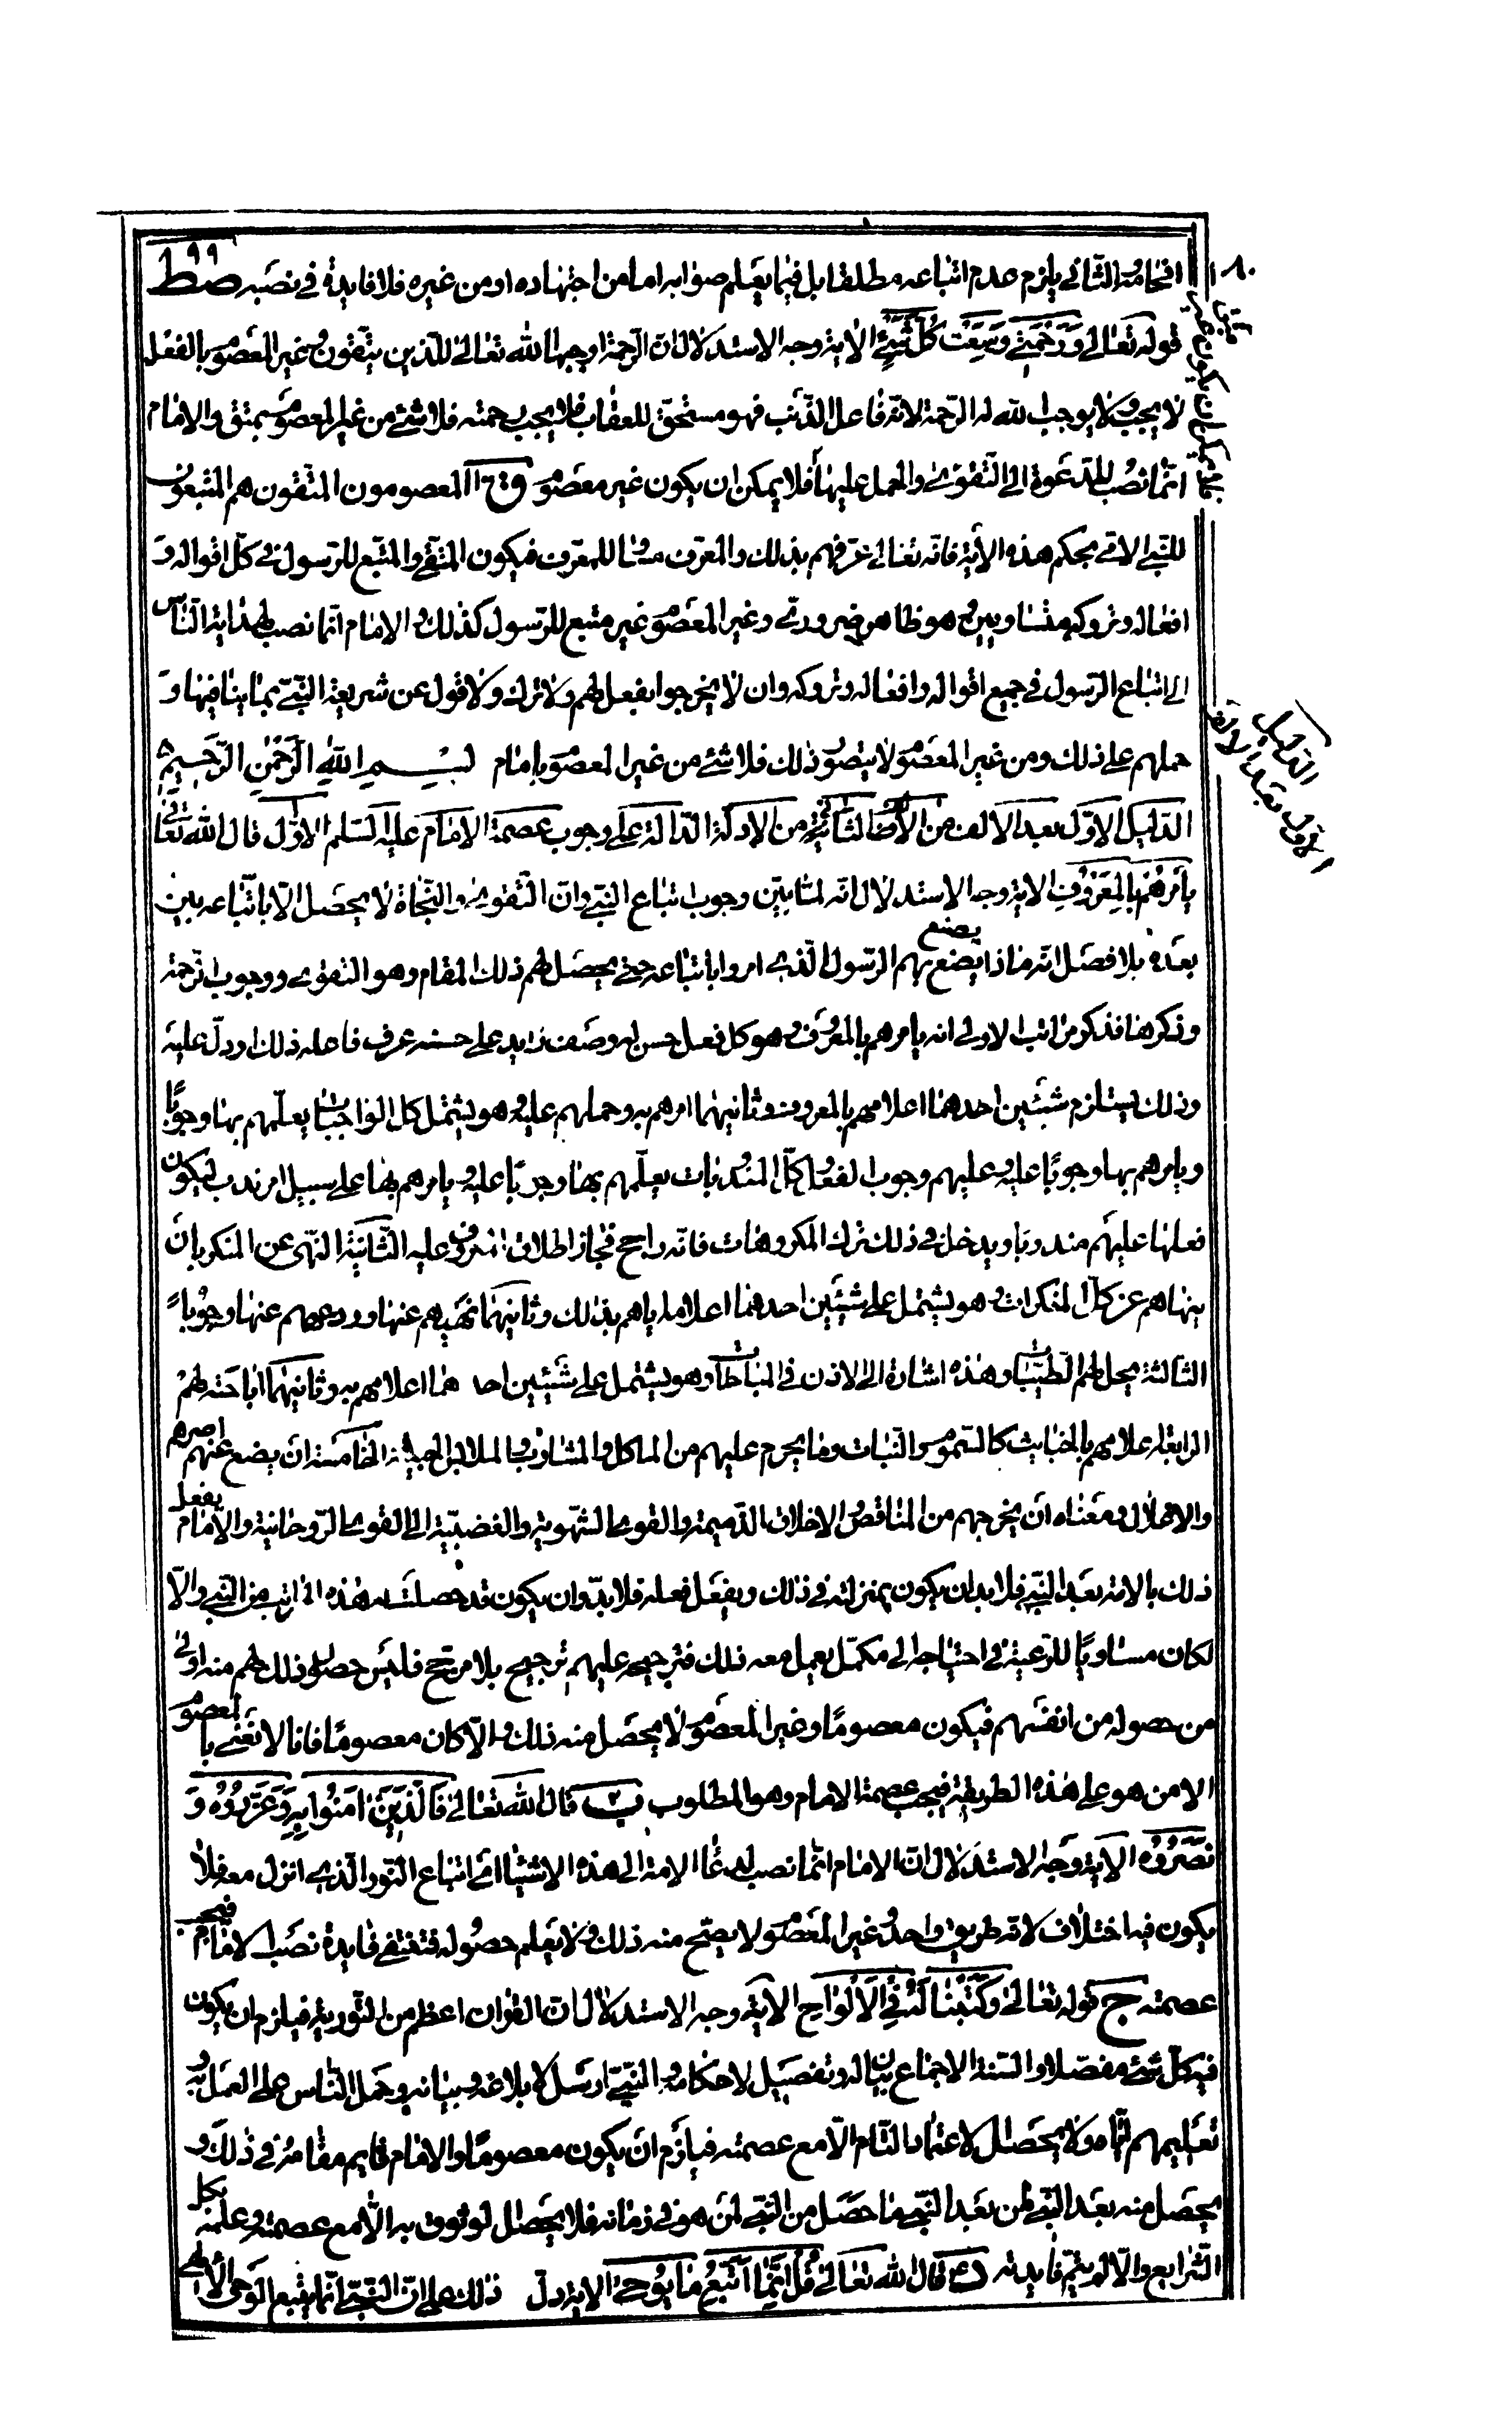 افحامه الثانی یلزم عدم اتباعه مطلقا بل فیما یعلم صوابه اما من اجتهاده او من غیره فلا فایدة فی نصبه صط ٩٩
قوله تعالی وَرَحْمَتِی وَسِعَتْ کُلَّ شَیْءٍ الایة وجه الاستدلال ان الرحمة اوجبها الله تعالی للذین یتقون و غیر المعصوم بالفعل
لا یجب و لا یوجب الله له الرحمة لانه فاعل الذنب فهو مستحق للعقاب فلا یجب رحمته فلا شئ من غیر المعصوم بمتق والامام
انما نصب للدعوة الی التقوی والحمل علیها فلا یمکن ان یکون غیر معصوم ق ا المعصومون المتقون هم المتبعون
للنبی الامی بحکم هذه الایة فانه تعالی عرفهم بذلک والمعرف مساو للمعرف فیکون المتقی والمتبع للرسول فی کل اقواله و
افعاله و تروکه متساویین و هو ظاهر ضروری و غیر المعصوم غیر متبع للرسول کذلک و الامام انما نصب لهدایة الناس
الی اتباع الرسول فی جمیع اقواله وافعاله و تروکه وان لا یخرجوا بفعل لهم ولا ترک ولا قول عن شریعة النبی بما ینافیها و
حملهم علی ذلک ومن غیر المعصوم لا یتصور ذلک فلا شئ من غیر المعصوم بامام بسم الله الرحمن الرحیم
الدلیل الاول بعد الالف من الادلة الدالة علی وجوب عصمة الامام علیه السلم الاول قال الله تعالی
یَأْمُرُهُمْ بِالْمَعْرُوفِ الایة وجه الاستدلال انه لما بین وجوب اتباع النبی وان التقوی والنجاة لا یحصل الا باتباعه بین
بعده بلا فصل انه ماذا یصنع یصنع بهم الرسول الذی امروا باتباعه حتی یحصل لهم ذلک المقام وهو التقوی ووجوب الرحمة
وذکرها فذکر مراتب الاولی انه یامرهم بالمعروف و هو کل فعل حسن له وصف زاید علی حسنه عرف فاعله ذلک او دل علیه
وذلک یستلزم شیئین احدهما اعلامهم بالمعروف وثانیهما امرهم به وحملهم علیه و هو یشتمل کل الواجبات یعلمهم بها وجوبًا
و یامرهم بها وجوبًا علیه و علیهم وجوب الفعل و کل المندوبات یعلمهم بها وجوبًا علیه و یامرهم بها علی سبیل امر ندب لیکون
فعلها علیهم مندوبًا و یدخل فی ذلک ترک المکروهات فانه راجح فجاز اطلاق المعروف علیه الثانیة النهی عن المنکر بان
ینهاهم عن کل المنکرات و هو یشتمل علی شیئین احدهما اعلامه ایاهم بذلک وثانیهما نهیهم عنها و ردعهم عنها وجوبًا
الثالثة یحل لهم الطیبات و هذه اشارة الی الاذن فی المباحات وهو یشتمل علی شیئین احدهما اعلامهم به وثانیهما اباحته لهم
الرابعة اعلامهم بالخبایث کالسموم و النبات وما یحرم علیهم من الماکل و المشارب و الملابس الخبیثة الخامسة ان یضع عنهم اصرهم
والاغلال ومعناه ان یخرجهم من المناقص و الاخلاق الذمیمة والقوی الشهویة والغضبیة الی القوی الروحانیة والامام یفعل
ذلک بالامة بعد النبی فلا بد ان یکون بمنزلته فی ذلک و یفعل فعله فلا بد و ان یکون قد حصلت له هذه المراتب من النبی والا
لکان مساویًا للرعیة فی احتیاجه الی مکمل یعمل معه ذلک فترجیحه علیهم ترجیح بلا مرجح فلیس حصول ذلک لهم منه اولی
من حصوله من انفسهم فیکون معصومًا وغیر المعصوم لا یحصل منه ذلک و الا کان معصومًا فانا لا نعنی بالمعصوم
الا من هو علی هذه الطریقة فیجب عصمة الامام وهو المطلوب ب قال الله تعالی فَالَّذِینَ آمَنُوا بِهِ وَعَزَّرُوهُ وَ
نَصَرُوهُ الایة وجه الاستدلال ان الامام انما نصب لدعاء الامة الی هذه الاشیاء اعنی اتباع النور الذی انزل معه فلا
یکون فیه اختلاف لانه طریق واحد و غیر المعصوم لا یصح منه ذلک و لا یعلم حصوله فتنتفی فایدة نصب الامام فیجب
عصمته ج قوله تعالی وَکَتَبْنَا لَهُ فِی الْأَلْوَاحِ الایة وجه الاستدلال ان القران اعظم من التوریة فیلزم ان یکون
فیه کل شئ مفصلا و السنة و الاجماع بیان له و تفصیل لاحکامه و النبی ارسل لابلاغه و بیانه و حمل الناس علی العمل به و
تعلیمهم ایاه و لا یحصل الاعتماد التام الا مع عصمته فیلزم ان یکون معصومًا و الامام قایم مقامه فی ذلک و
یحصل منه بعد النبی لمن بعد النبی ما حصل من النبی لمن هو فی زمانه فلا یحصل الوثوق به الا مع عصمته و علمه بکل
الشرایع و الا لم یتم فایدته د قال الله تعالی قُلْ إِنَّمَا أَتَّبِعُ مَا یُوحَی الایة دل ذلک علی ان النبی انما یتبع الوحی الالهی
الدلیل
الاول بعد الالف